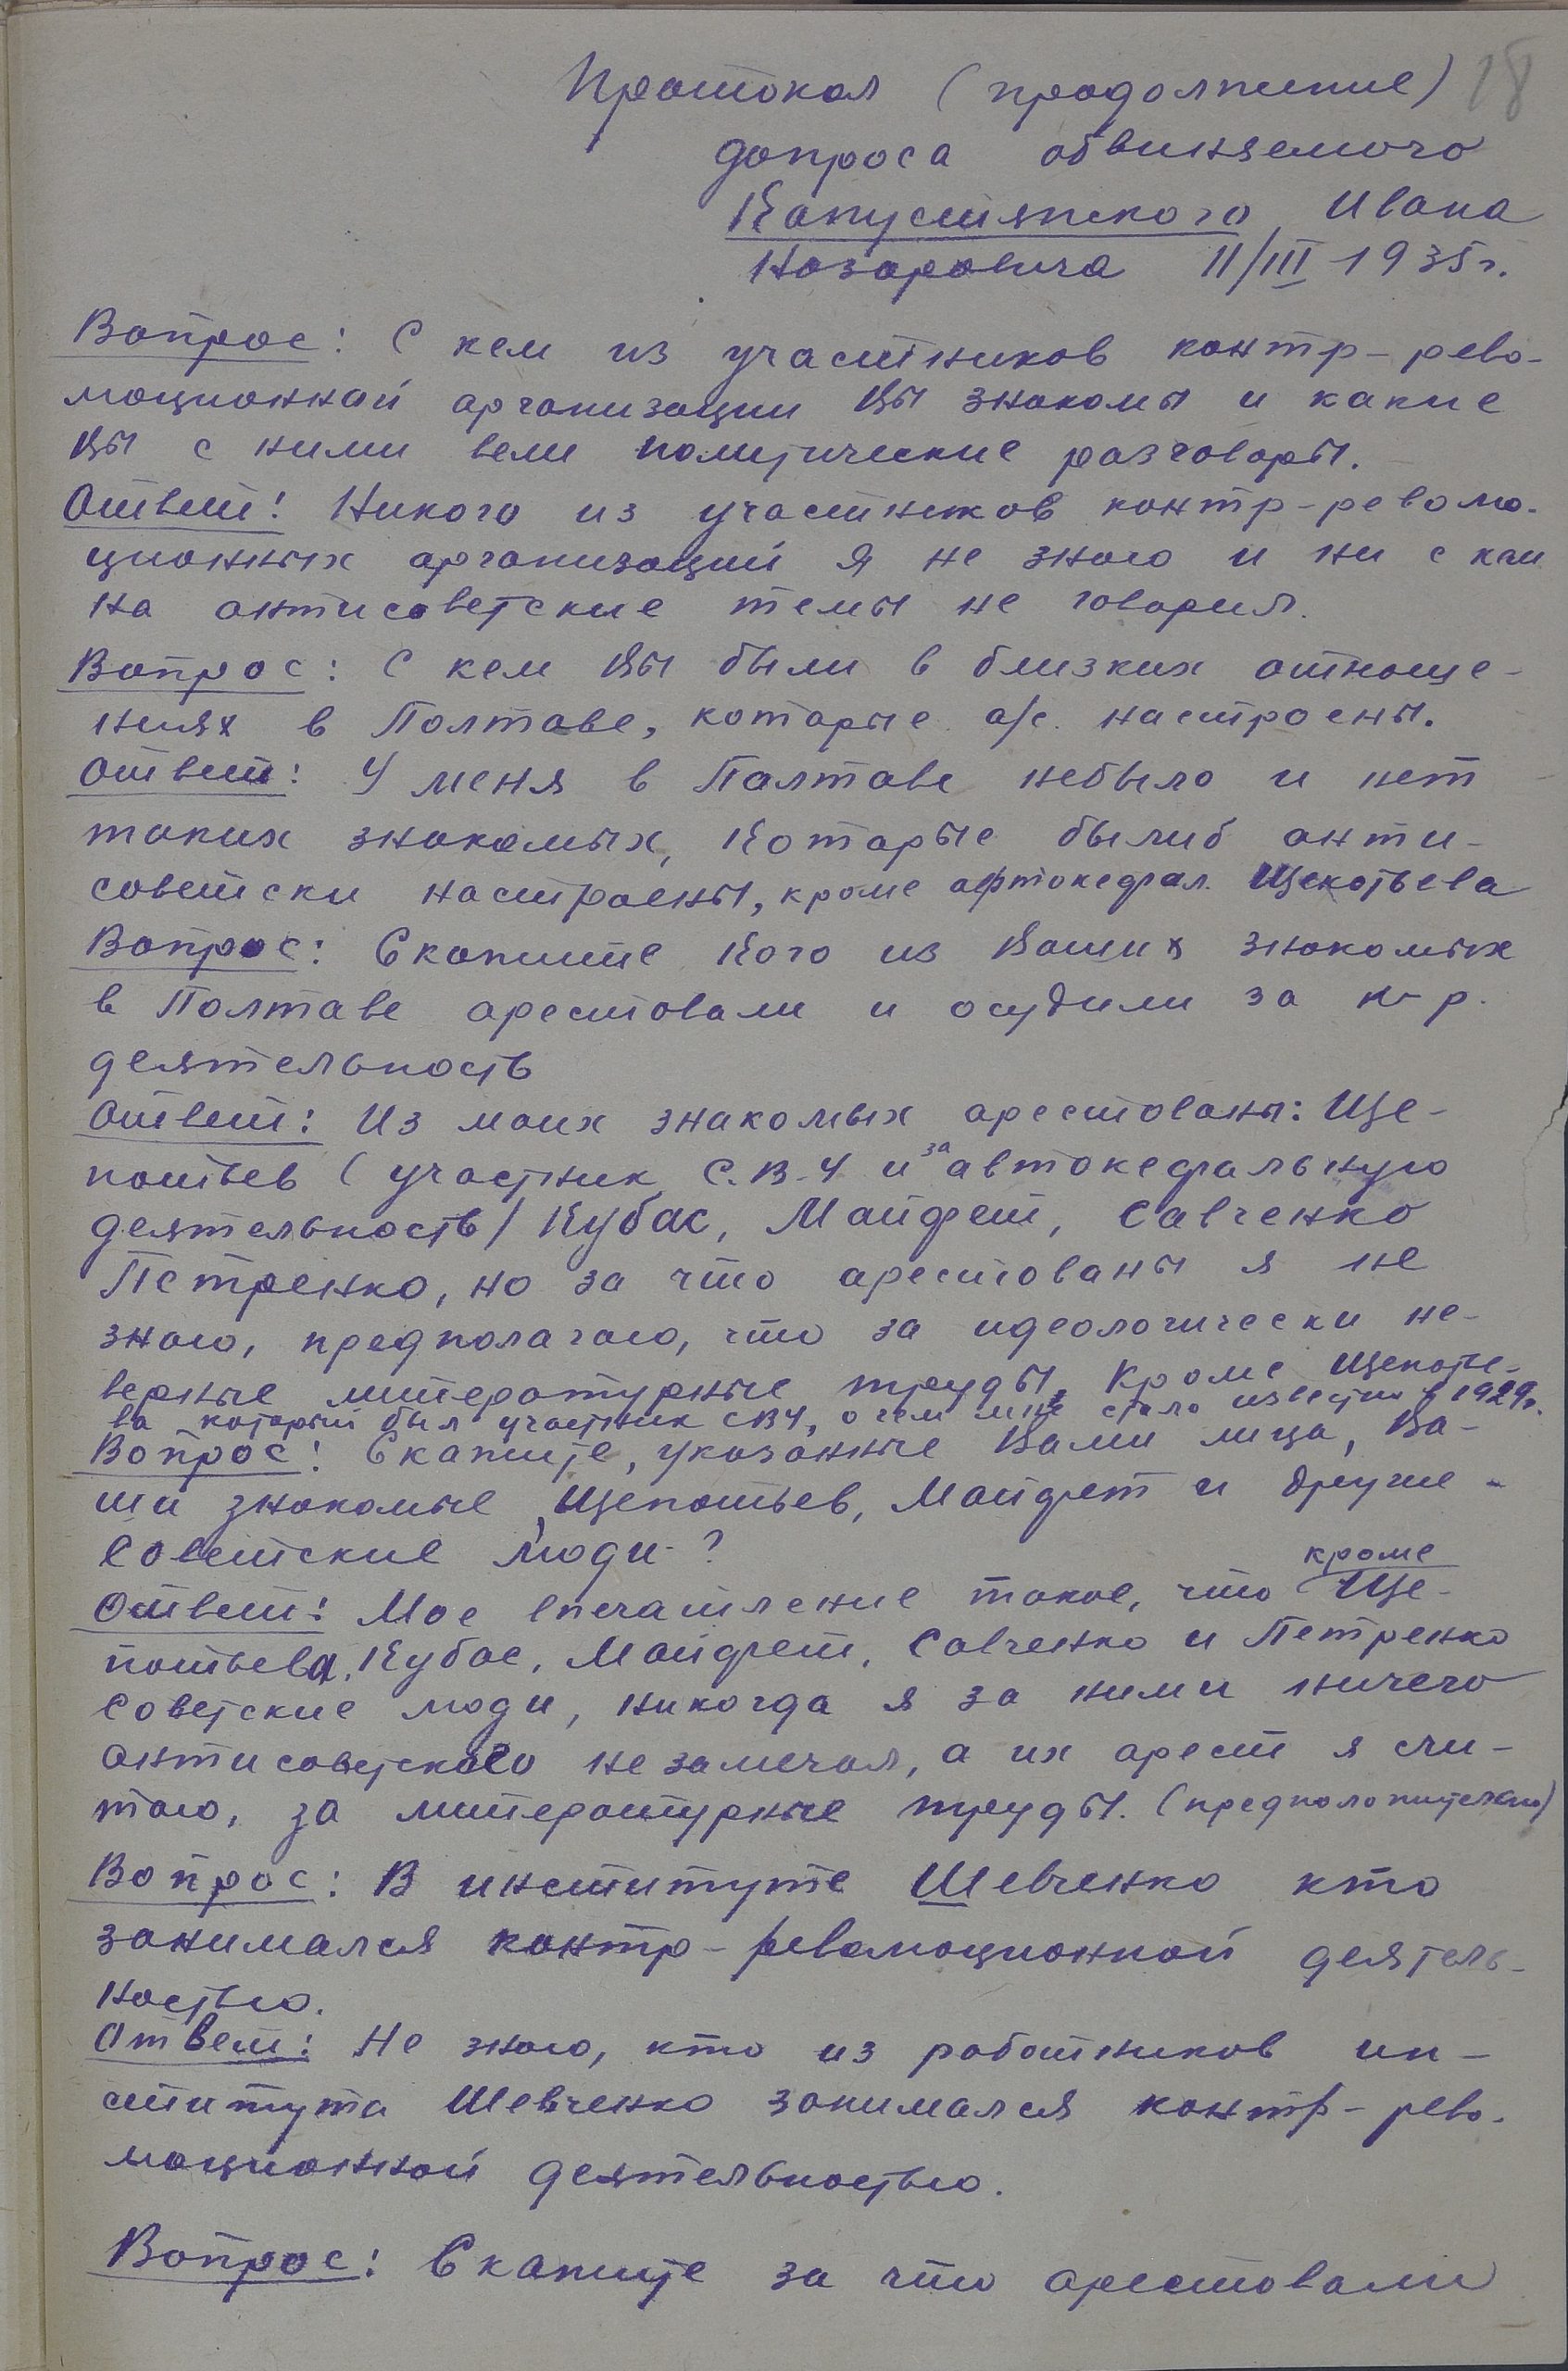 18
Протокол (продолжение)
допроса обвиняемого
Капустянского Ивана
Назаровича 11/III 1935г.
Вопрос: С кем из участников контр-рево-
люционной организации Вы знакомы и какие
Вы с ними вели политические разговоры.
Ответ: Никого из участников контр-револю-
ционных организаций я не знаю и ни с кем
на антисоветские темы не говорил.
Вопрос: С кем Вы были в близких отноше-
ниях в Полтаве, которые а/с. настроены.
Ответ: У меня в Полтаве небыло и нет
таких знакомых, которые былиб анти-
советски настроены, кроме афтокефал. Щепотьева
Вопрос: Скажите кого из Ваших знакомых
в Полтаве арестовали и осудили за к-р.
деятельность
Ответ: Из моих знакомых арестованы: Ще-
потьев (участник С.В.У и за автокефальную
деятельность) Кубас, Майфет, Савченко
Петренко, но за что арестованы я не
знаю, предполагаю, что за идеологически не-
верные литературные труды, кроме Щепотье-
ва который был участник СВУ, о чем мне стало известно в 1929г.
Вопрос: Скажите, указанные Вами лица, Ва-
ши знакомые, Щепотьев, Майфет и другие -
советские люди-?
Ответ: Мое впечатление такое, что кроме Ще-
потьева, Кубас, Майфет, Савченко и Петренко
советские люди, никогда я за ними ничего
антисоветского незамечал, а их арест я счи-
таю, за литературные труды. (предположительно)
Вопрос: В институте Шевченко кто
занимался контр-революционной деятель-
ностью.
Ответ: Не знаю, кто из работников ин-
ститута Шевченко занимался контр-рево-
люционной деятельностью.
Вопрос: Скажите за что арестовали